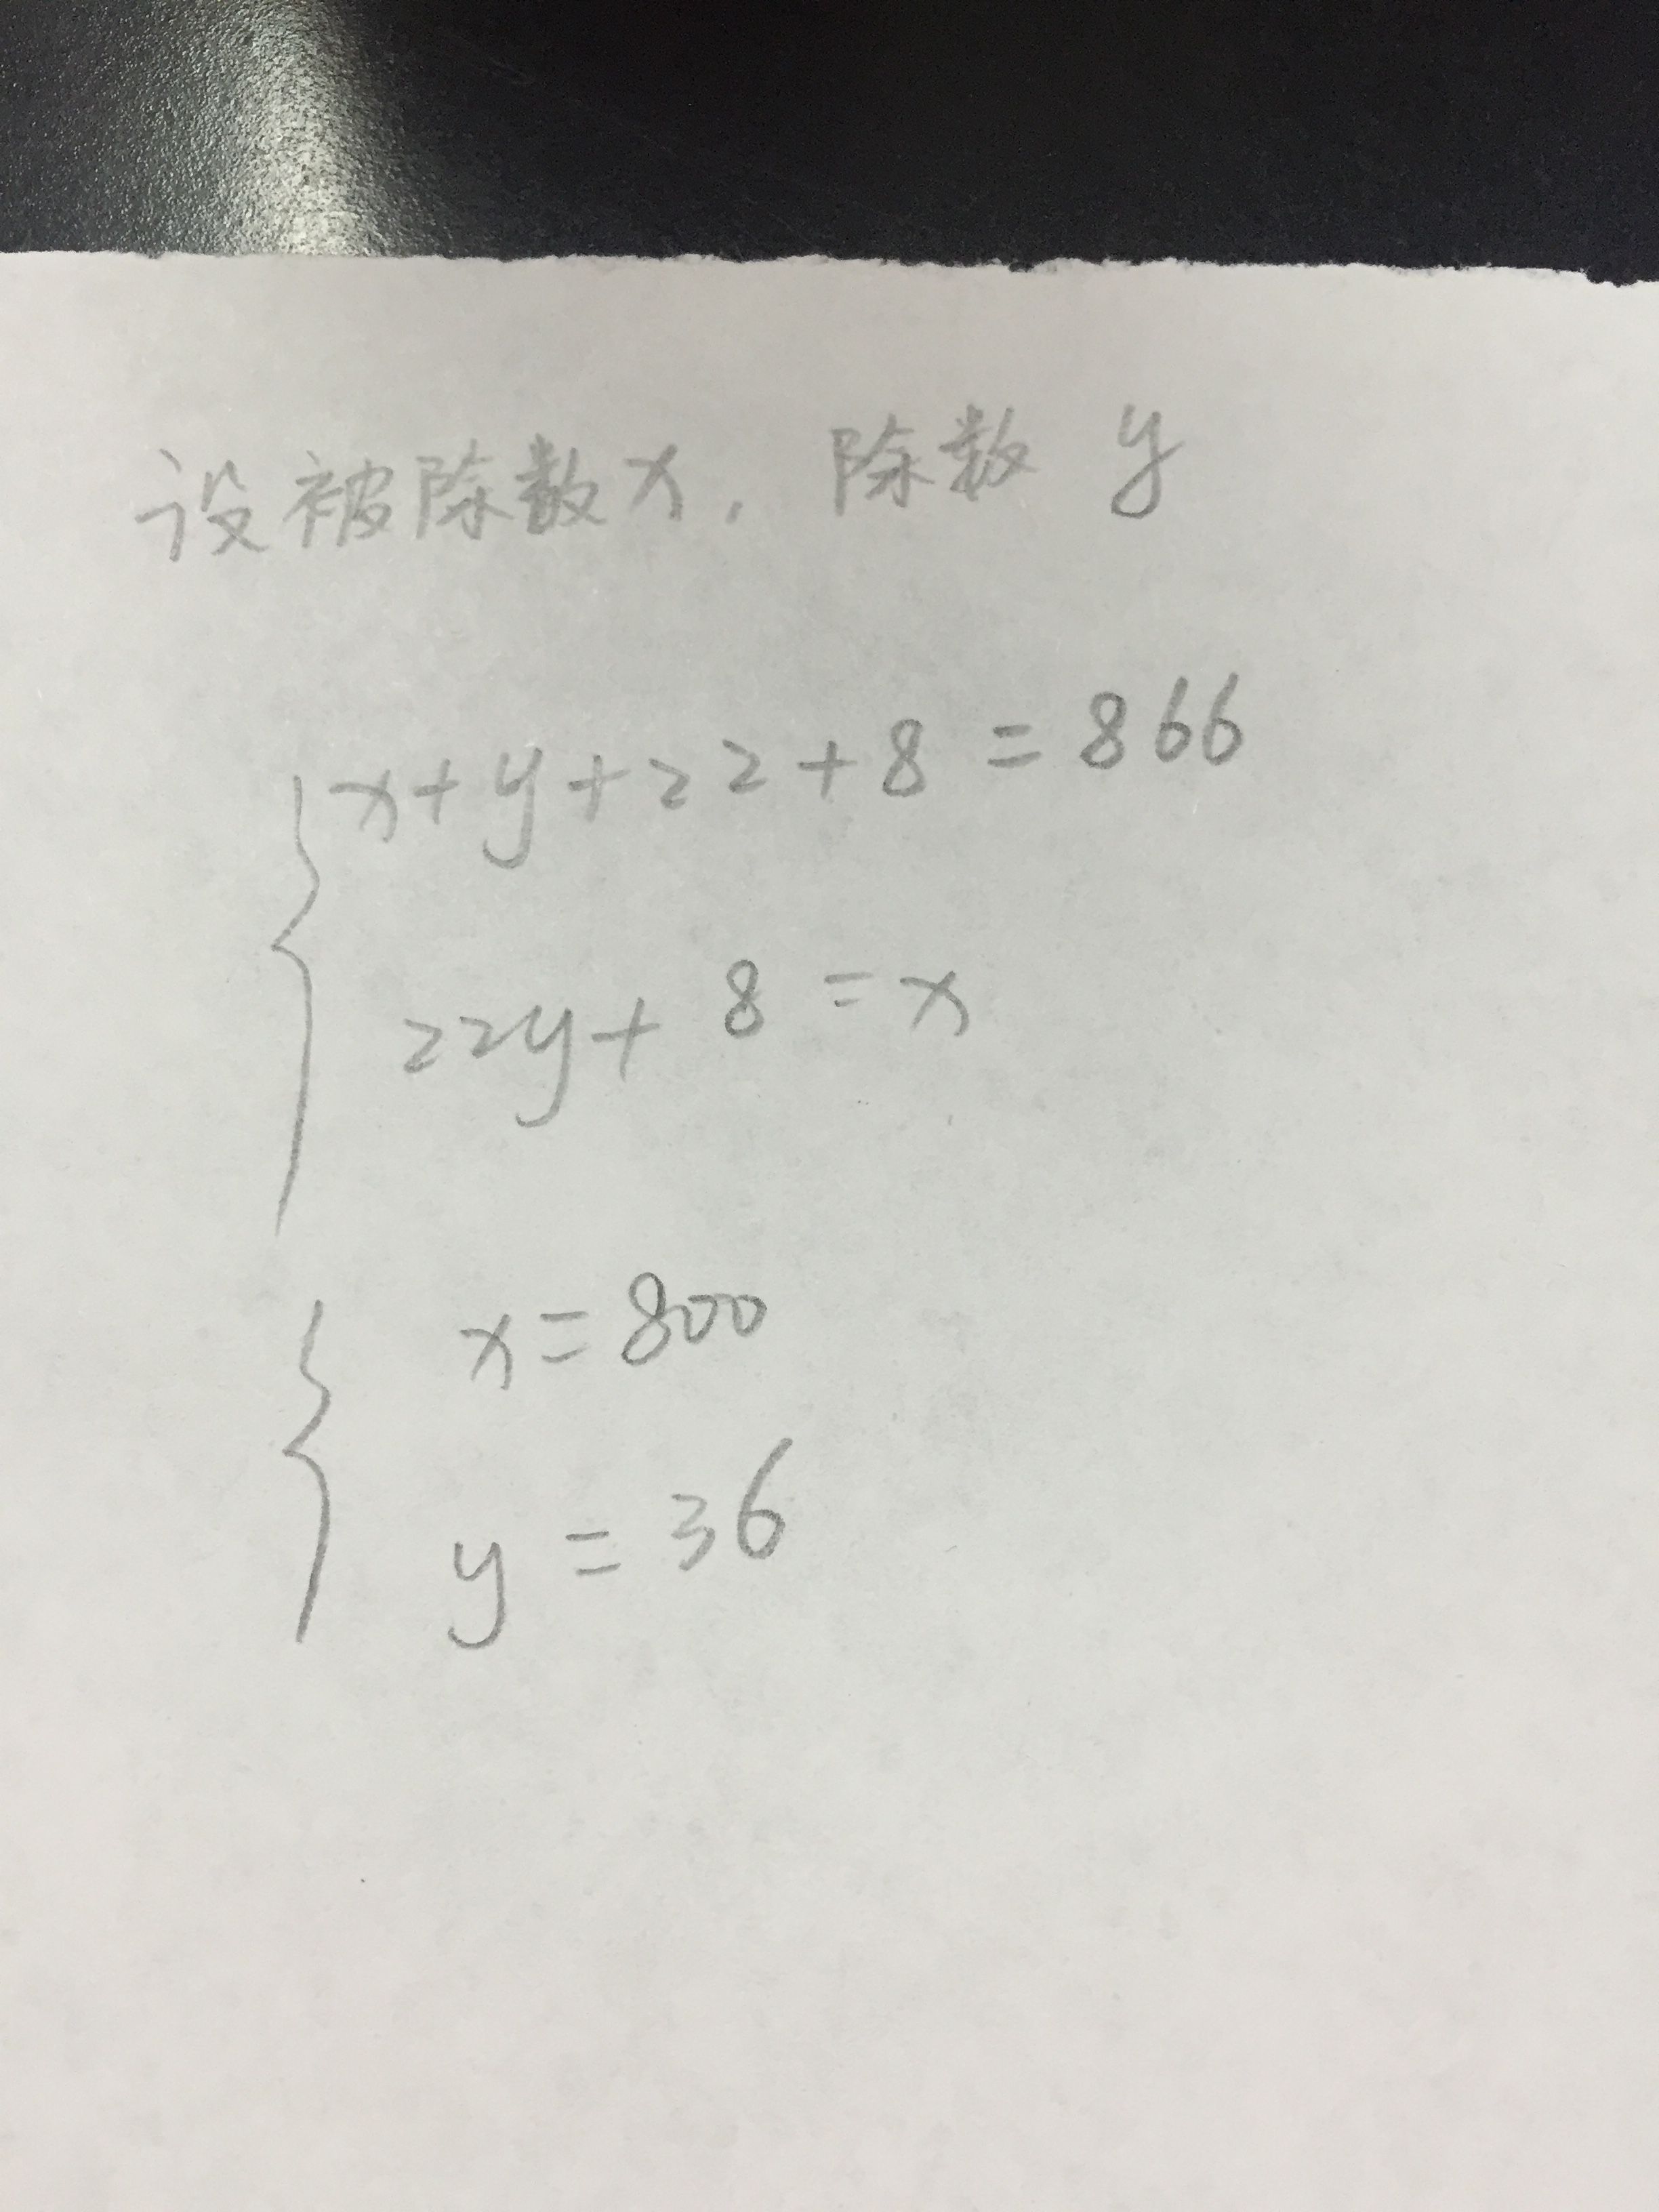 设被除数x, 除数 y
x+y+22+8=866
22y+8=x
x=800
y=36